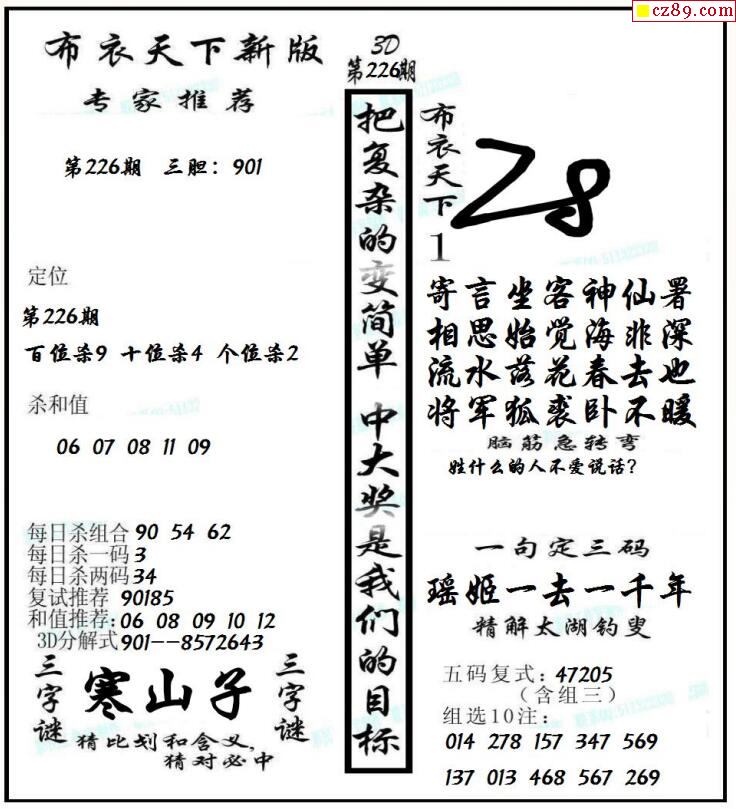 cz89.com
布衣天下新版
专家推荐
第226期 三胆：901
定位
第226期
百位杀9 十位杀4 个位杀2
杀和值
06 07 08 11 09
每日杀组合 90 54 62
每日杀一码 3
每日杀两码 34
复试推荐 90185
和值推荐：06 08 09 10 12
3D分解式 901--8572643
三字谜
寒山子
三字谜
猜比划和含义，
猜对必中
3D
第226期
把复杂的变简单 中大奖是我们的目标
布衣天下1
28
寄言坐客神仙署
相思始觉海非深
流水落花春去也
将军狐裘卧不暖
脑筋急转弯
姓什么的人不爱说话？
一句定三码
瑶姬一去一千年
精解太湖钓叟
五码复式：47205
（含组三）
组选10注：
014 278 157 347 569
137 013 468 567 269